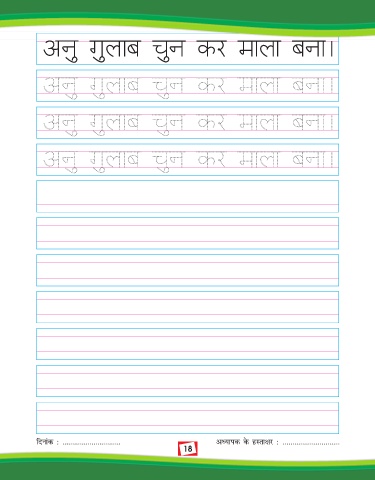 अनु गुलाब चुन कर माला बना।
अनु गुलाब चुन कर माला बना।
अनु गुलाब चुन कर माला बना।
अनु गुलाब चुन कर माला बना।
दिनांक : ............................ अध्यापक के हस्ताक्षर : ............................
18